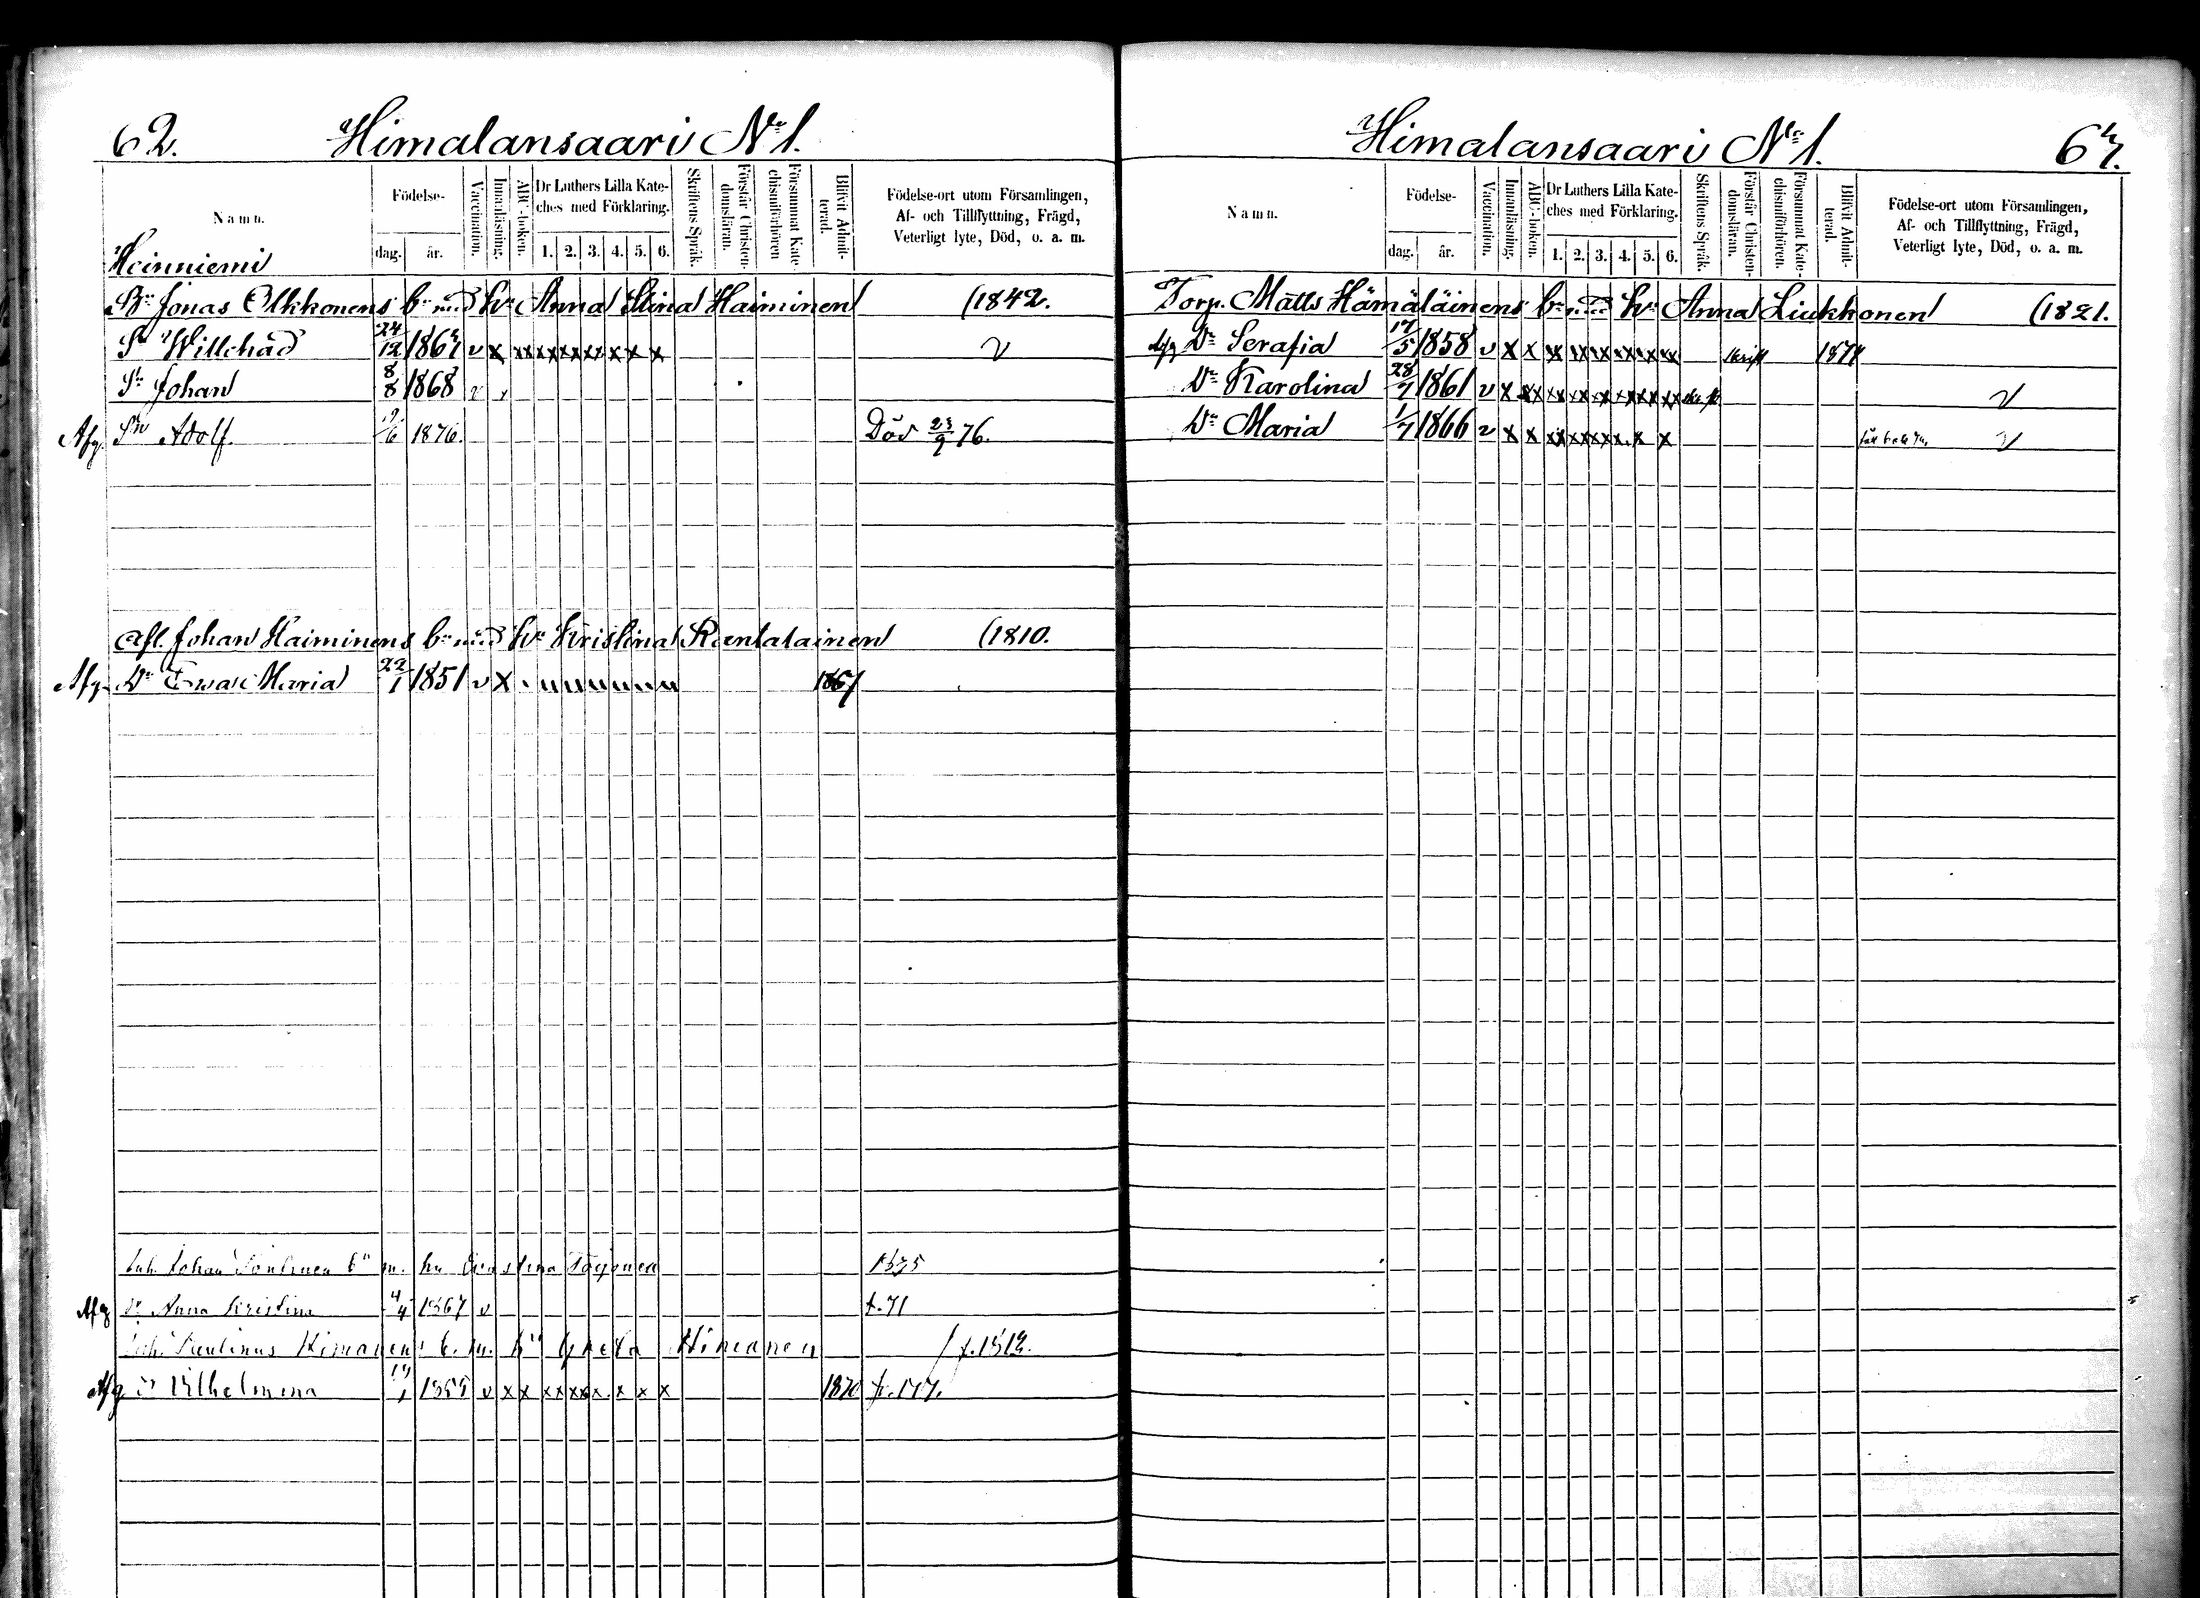 62. Himalansaari No 1.
Namn.
Födelse-
dag. år.
Vaccination.
Innanläsning.
ABC-boken.
Dr Luthers Lilla Kate-
ches med Förklaring.
1. 2. 3. 4. 5. 6.
Skriftens Språk.
Förstår Christen-
domsläran.
Försummat Kate-
chismiförhören
Blifvit Admit-
terad.
Födelse-ort utom Församlingen,
Af- och Tillflyttning, Frägd,
Veterligt lyte, Död, o. a. m.
Heinniemi
Bn Jonas Olkkonens bn med hu Anna Stina Haiminen (1842.
Sn Willehad 24/12 1867 v x xx xx xx xx x x x v
Sn Johan 8/8 1868 v
Afg. Sn Adolf. /6 1876. Död 23/9 76.
Afl. Johan Haiminens bn med hu Kristina Rantalainen (1810.
Afg. Dr Ewa Maria 22/1 1851 v x 1867
Inh. Johan bn m. hu Töyönen
Afg Dr Anna Kristina 4/4 1867 v f. 71
Himanen b. m. hu Greta Himanen
Afg Dr Vilhelmina v x x xx xx x. x x x 1870
Himalansaari No 1. 63.
Namn.
Födelse-
dag. år.
Vaccination.
Innanläsning.
ABC-boken.
Dr Luthers Lilla Kate-
ches med Förklaring.
1. 2. 3. 4. 5. 6.
Skriftens Språk.
Förstår Christen-
domsläran.
Försummat Kate-
chismiförhören.
Blifvit Admit-
terad.
Födelse-ort utom Församlingen,
Af- och Tillflyttning, Frägd,
Veterligt lyte, Död, o. a. m.
Torp. Matts Hämäläinens bn med hu Anna Liukkonen (1821.
Afg Dr Serafia 17/5 1858 v x x xx xx xx xx xx xx skrift 187
Dr Karolina 28/7 1861 v x xx xx xx xx xx xx xx v
Dr Maria 1/7 1866 v x x xx xx xx x x x v